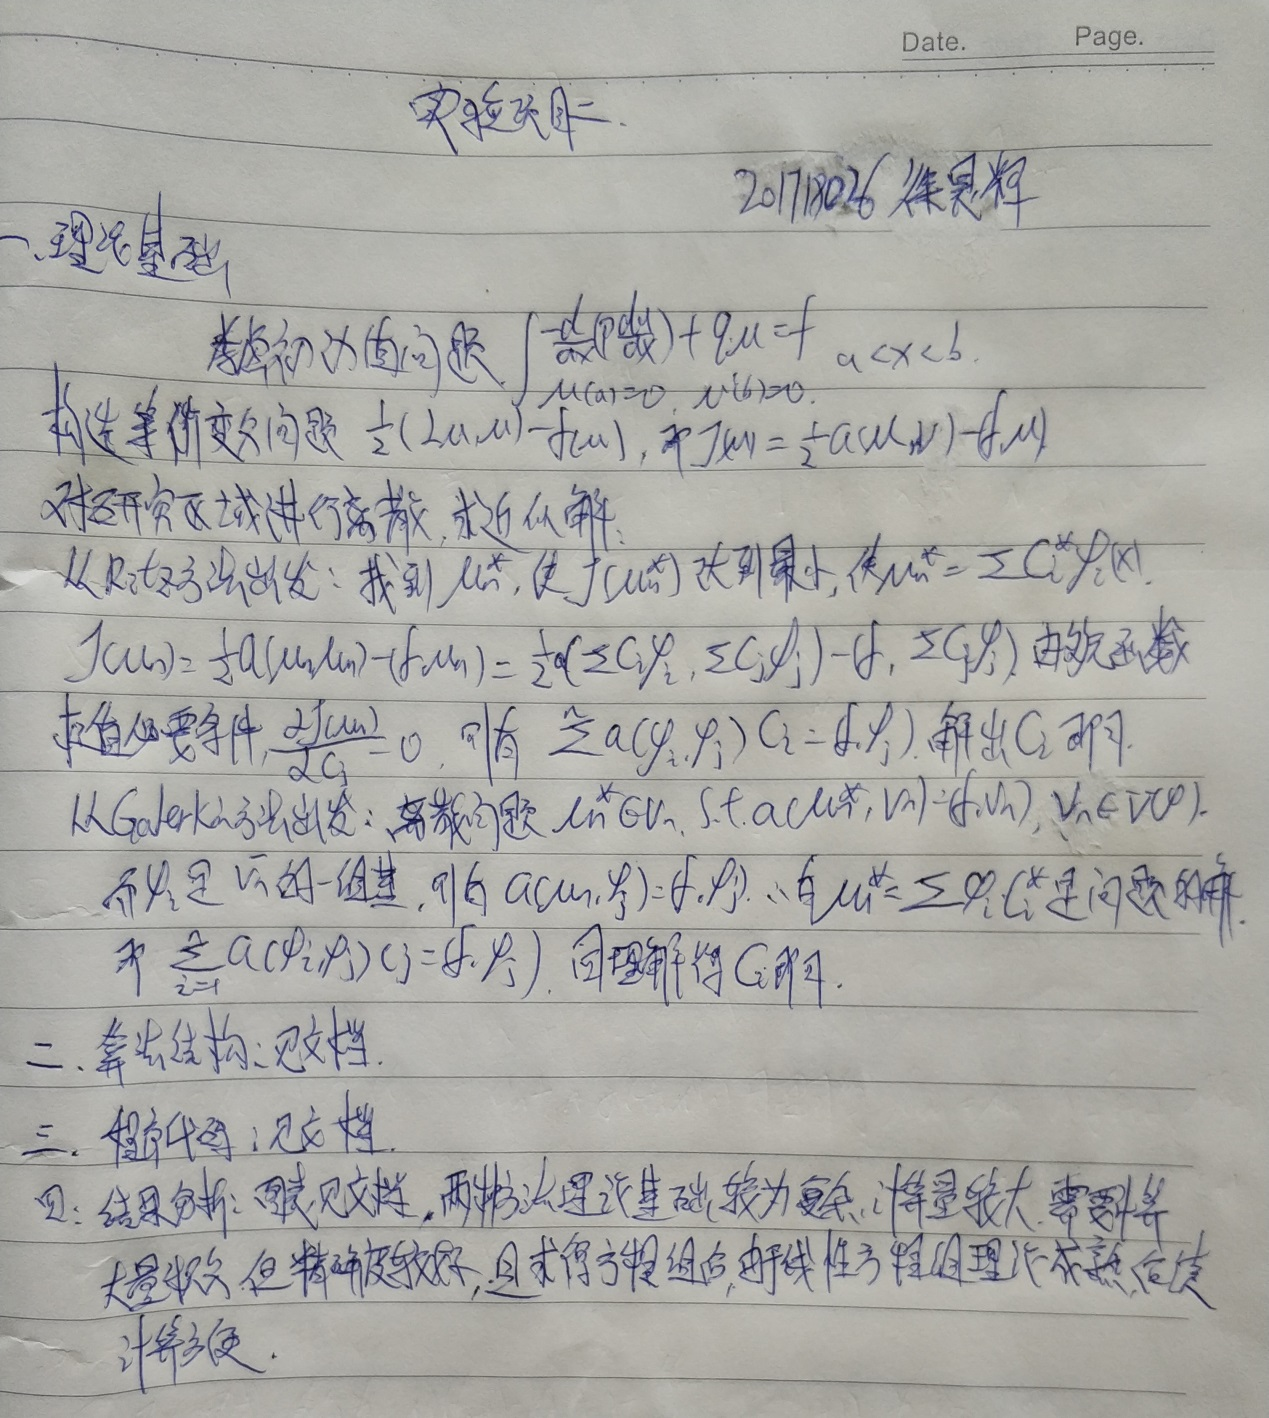 Date. Page.
实验项目二.
201718026 徐恩辉
一、理论基础
考虑初边值问题 { -d/dx(p du/dx) + qu = f a<x<b.
u(a)=0, u'(b)=0.
构造等价变分问题 1/2(Lu,u)-f(u), 即J(u)=1/2a(u,u)-(f,u)
对研究区域进行离散,求近似解.
从Ritz方法出发:找到 un*,使J(un*)达到最小,使un*=ΣCi*φi(x).
J(un)=1/2a(un,un)-(f,un)=1/2a(ΣCiφi, ΣCjφj)-(f, ΣCjφj) 由多元函数
极值必要条件, ∂J(un)/∂Cj=0, 则有 Σⁿa(φi,φj)Ci=(f,φj).解出Ci即可.
从Galerkin方法出发:离散问题 un*∈Vn, s.t. a(un*,Vn)=(f,Vn), Vn∈V(φ).
而φi是Vn的一组基,则有a(un,φj)=(f,φj). ∴有un*=ΣφiCi*是问题的解.
即 Σⁿᵢ₌₁ a(φi,φj)Cj=(f,φj). 同理解得Ci即可.
二、算法结构:见文档.
三、程序代码:见文档.
四:结果分析:图表见文档.两种方法理论基础较为复杂,计算量较大,需要计算
大量积分.但精确度较好,且求得方程组后,由于线性方程组理论成熟,
计算方便.